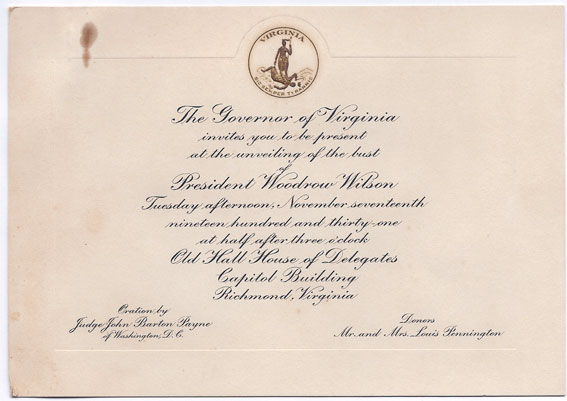 VIRGINIA
SIC SEMPER TYRANNIS
The Governor of Virginia
invites you to be present
at the unveiling of the bust
of
President Woodrow Wilson
Tuesday afternoon, November seventeenth
nineteen hundred and thirty-one
at half after three o'clock
Old Hall House of Delegates
Capitol Building
Richmond, Virginia
Oration by
Judge John Barton Payne
of Washington, D.C.
Donors
Mr. and Mrs. Louis Pennington